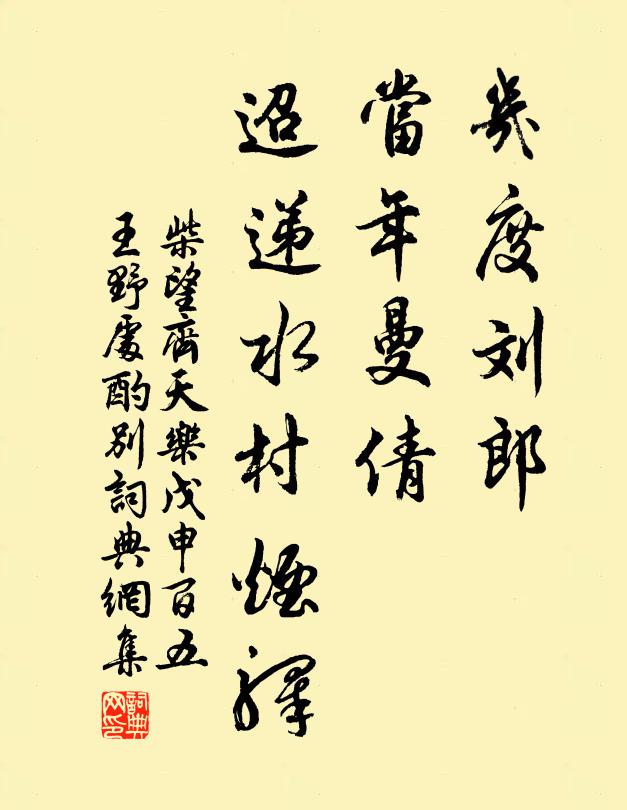 幾度刘郎
當年曼倩
迢递水村煙驛
柴望齊天樂戊申百五
王野處酌別詞典網集
詞典网印